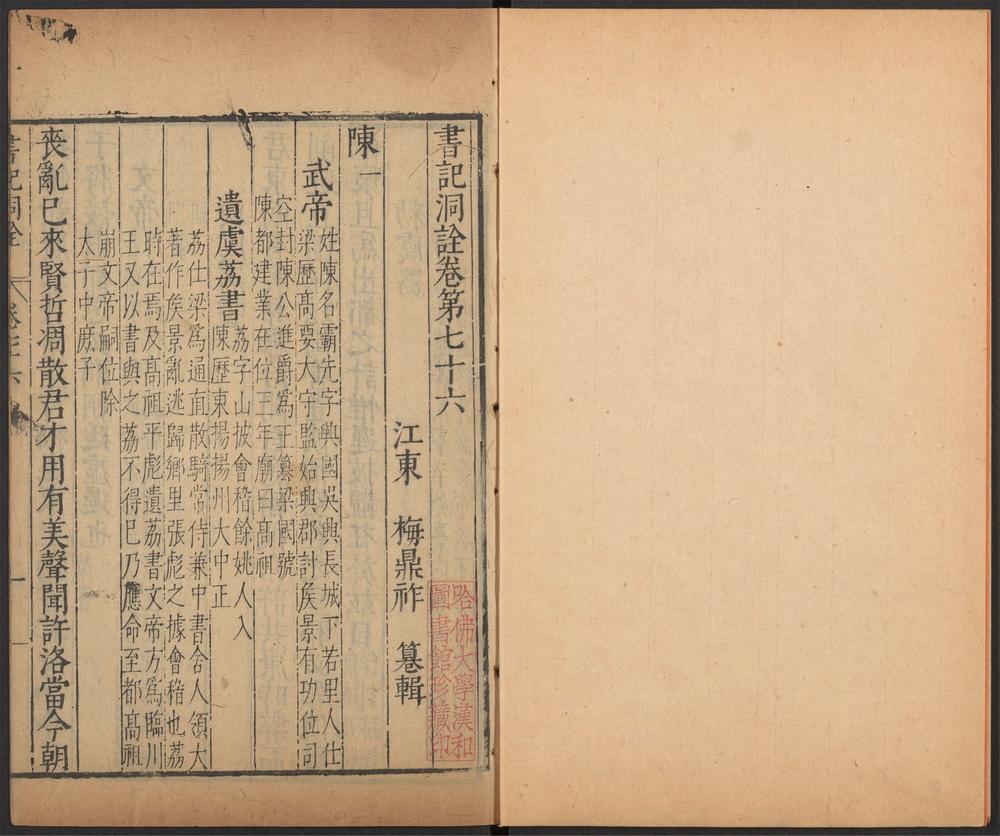 書記洞詮卷第七十六
江東　梅鼎祚　篹輯
哈佛大學漢和
圖書館珍藏印
陳一
武帝
姓陳名霸先字興國吳興長城下若里人仕
梁歷髙要大守監始興郡討侯景有功位司
空封陳公進爵爲王篡梁國號
陳都建業在位三年廟曰髙祖
遺虞荔書
荔字山披會稽餘姚人入
陳歷東揚揚州大中正
荔仕梁爲通直散騎常侍兼中書舍人領大
著作侯景亂逃歸鄉里張彪之據會稽也荔
時在焉及髙祖平彪遺荔書文帝方爲臨川
王又以書與之荔不得巳乃應命至都髙祖
崩文帝嗣位除
太子中庶子
喪亂巳來賢哲凋散君才用有美聲聞許洛當今朝
書記洞詮
卷七十六
一